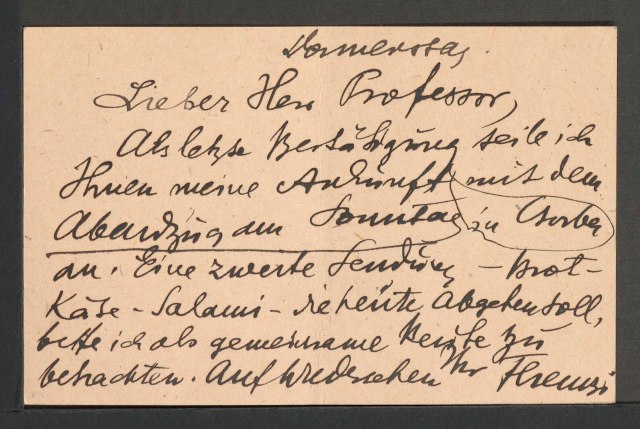 Donnerstag.
Lieber Herr Professor,
Als letzte Bestätigung teile ich
Ihnen meine Ankunft mit dem
Abendzug am Sonntag in Csorba
an. Eine zweite Sendung – Brot –
Käse – Salami – die heute abgehen soll,
bitte ich als gemeinsame Beute zu
betrachten. Auf Wiedersehen Ihr Ferenczi